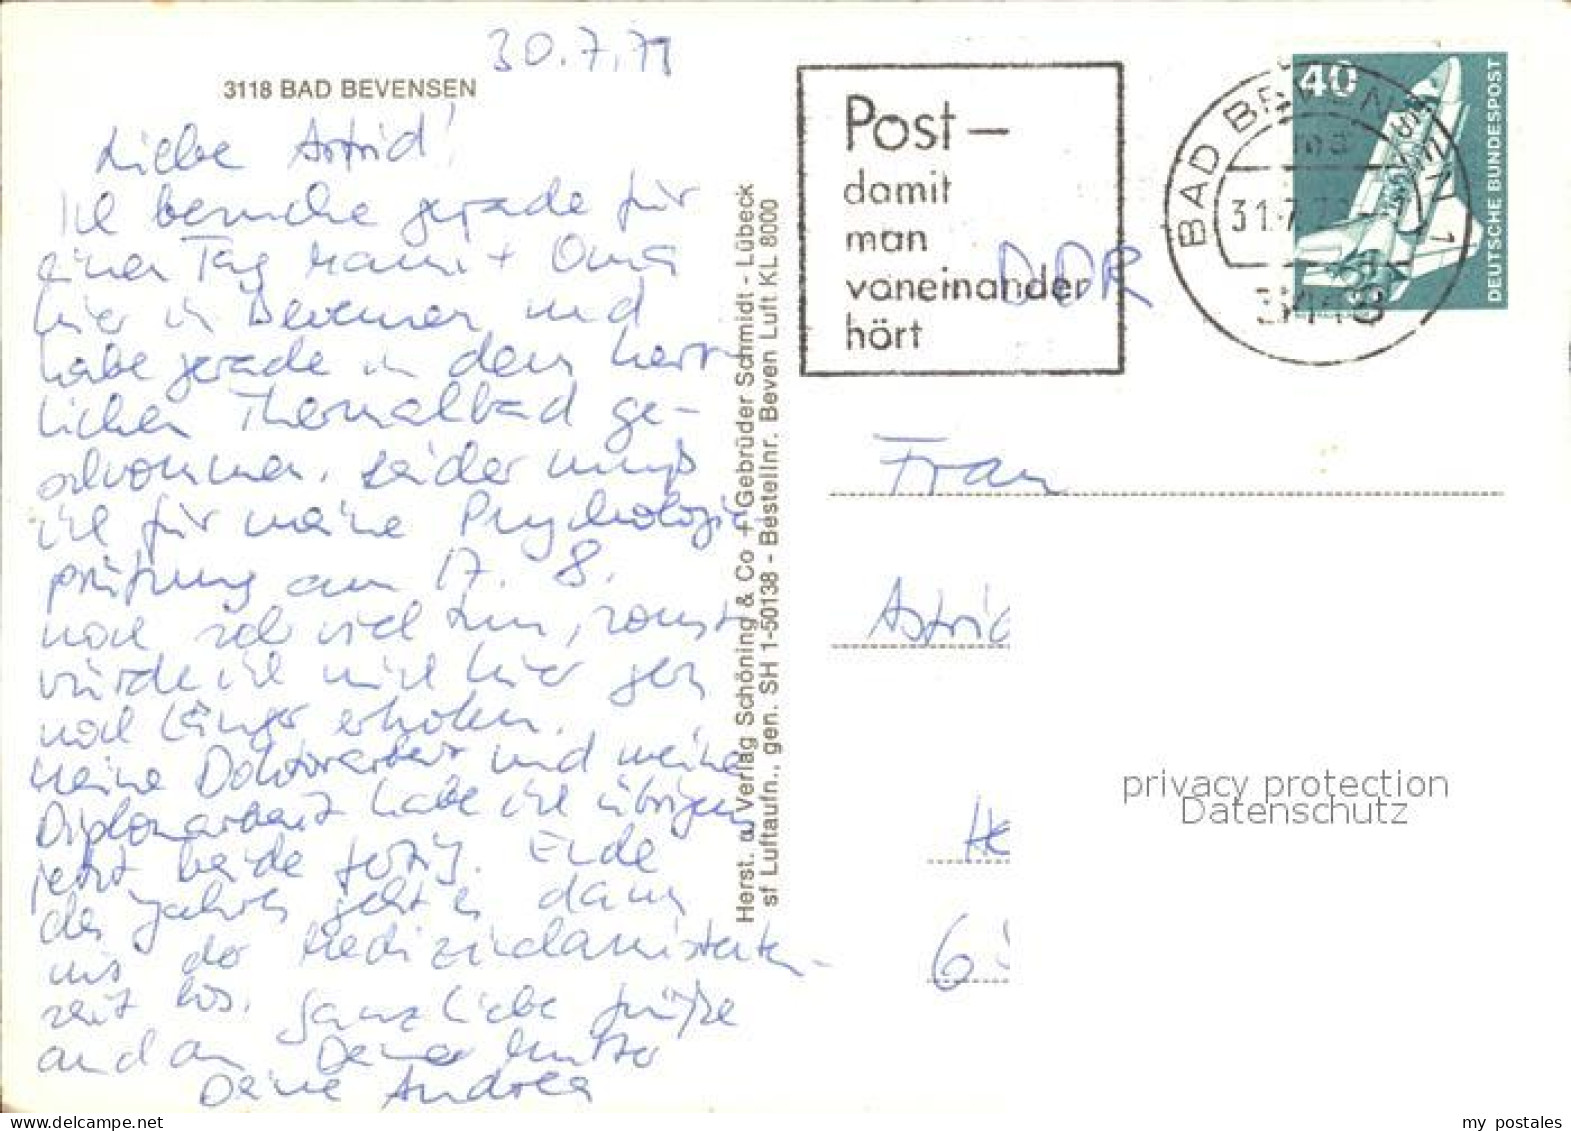 30.7.79
3118 BAD BEVENSEN
Liebe Astrid!
Ich besuche gerade für
einen Tag Mami + Oma
hier in Bevensen und
habe gerade in dem herr-
lichen Thermalbad ge-
schwommen. Leider muß
ich für meine Psychologie
prüfung am 17. 8.
noch so viel tun, sonst
würde ich mich hier gern
noch länger erholen.
Meine Doktorarbeit und meine
Diplomarbeit habe ich übrigens
jetzt beide fertig. Ende
des Jahres geht es dann
mit der Medizinalassistenten-
zeit los. Ganz liebe Grüße
auch an Deine Mutter
Deine Andrea
Herst. u. Verlag Schöning & Co + Gebrüder Schmidt - Lübeck
sf Luftaufn., gen. SH 1-50138 - Bestellnr. Beven Luft KL 8000
Post –
damit
man
voneinander
hört
DDR
BAD BEVENSEN 1
31.7.79
3118
40
DEUTSCHE BUNDESPOST
Frau
Astrid
He
6
privacy protection
Datenschutz
www.delcampe.net
my_postales